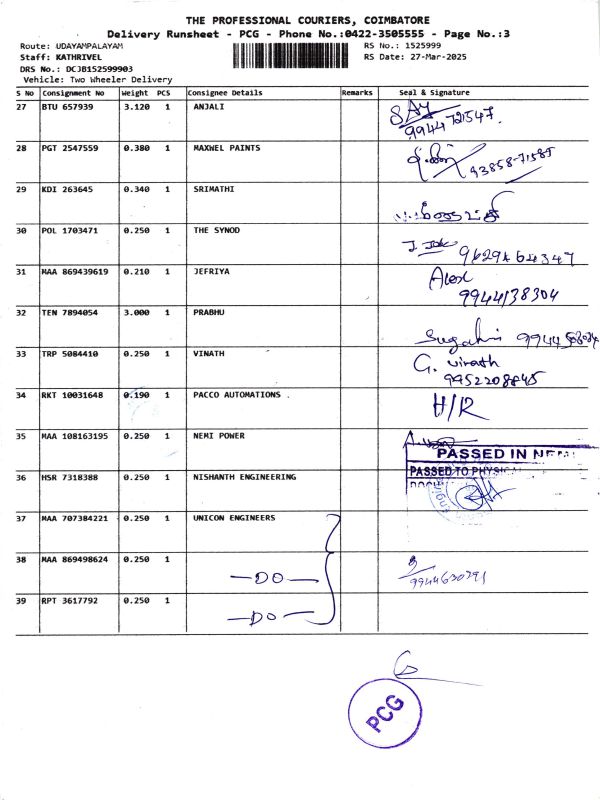 THE PROFESSIONAL COURIERS, COIMBATORE
Delivery Runsheet - PCG - Phone No.:0422-3505555 - Page No.:3
Route: UDAYAMPALAYAM RS No.: 1525999
Staff: KATHRIVEL RS Date: 27-Mar-2025
DRS No.: DCJB152599903
Vehicle: Two Wheeler Delivery
S No Consignment No Weight PCS Consignee Details Remarks Seal & Signature
27 BTU 657939 3.120 1 ANJALI
28 PGT 2547559 0.380 1 MAXWEL PAINTS
29 KDI 263645 0.340 1 SRIMATHI
30 POL 1703471 0.250 1 THE SYNOD
31 MAA 869439619 0.210 1 JEFRIYA Alex
9944138304
32 TEN 7894054 3.000 1 PRABHU
33 TRP 5084410 0.250 1 VINATH G. Vinath
9952208845
34 RKT 10031648 0.190 1 PACCO AUTOMATIONS . H/R
35 MAA 108163195 0.250 1 NEMI POWER
PASSED IN
36 HSR 7318388 0.250 1 NISHANTH ENGINEERING PASSED TO
37 MAA 707384221 0.250 1 UNICON ENGINEERS
38 MAA 869498624 0.250 1 —DO— 9944630291
39 RPT 3617792 0.250 1 —DO—
PCG